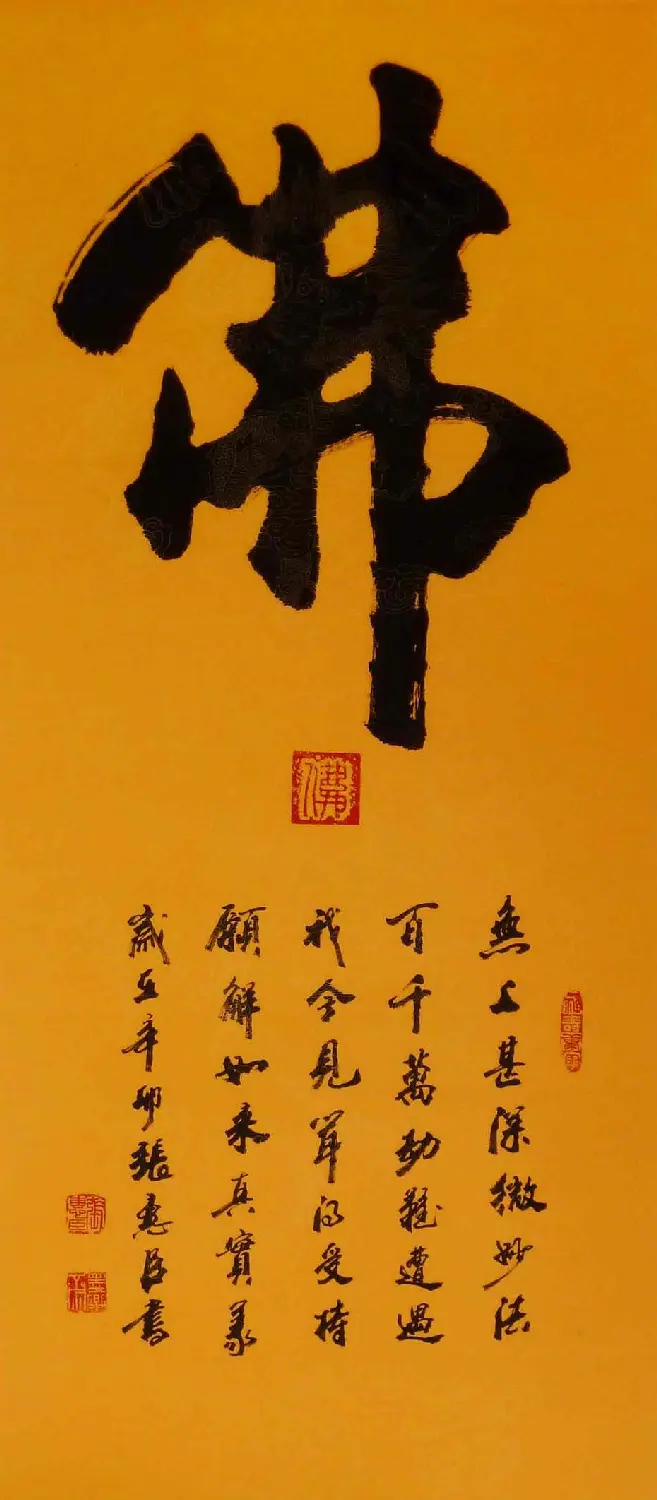 佛
佛
無上甚深微妙法
百千萬劫難遭遇
我今見聞得受持
願解如来真實義
歲在辛卯張惠臣書